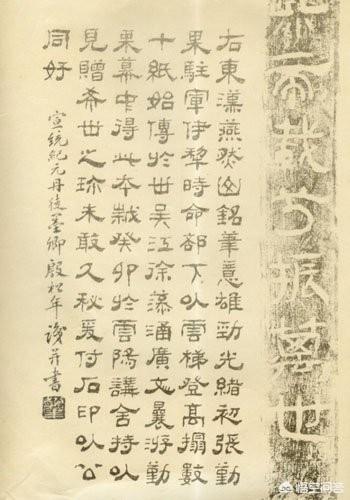 熙帝載兮振萬世
右東漢燕然山銘筆意雄勁光緒初張勤
果駐軍伊犁時命部下以雲梯登高搨數
十紙始傳於世吳江徐藻涵廣文曩游勤
果幕中得此本歲癸卯於雲陽講舍持以
見贈希世之珍未敢久秘爰付石印以公
同好
宣統紀元丹徒墨卿殷松年識并書
悟空问答